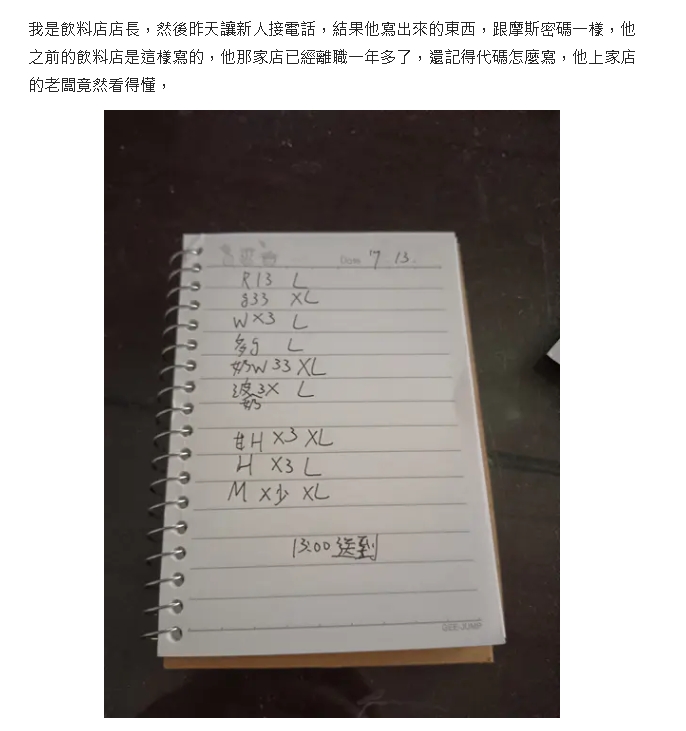 我是飲料店店長，然後昨天讓新人接電話，結果他寫出來的東西，跟摩斯密碼一樣，他
之前的飲料店是這樣寫的，他那家店已經離職一年多了，還記得代碼怎麼寫，他上家店
的老闆竟然看得懂，
Date 7 13.
R13 L
g33 XL
W X3 L
多g L
奶W 33 XL
波霸奶 3X L
甘H X3 XL
H X3 L
M X少 XL
13:00 送到